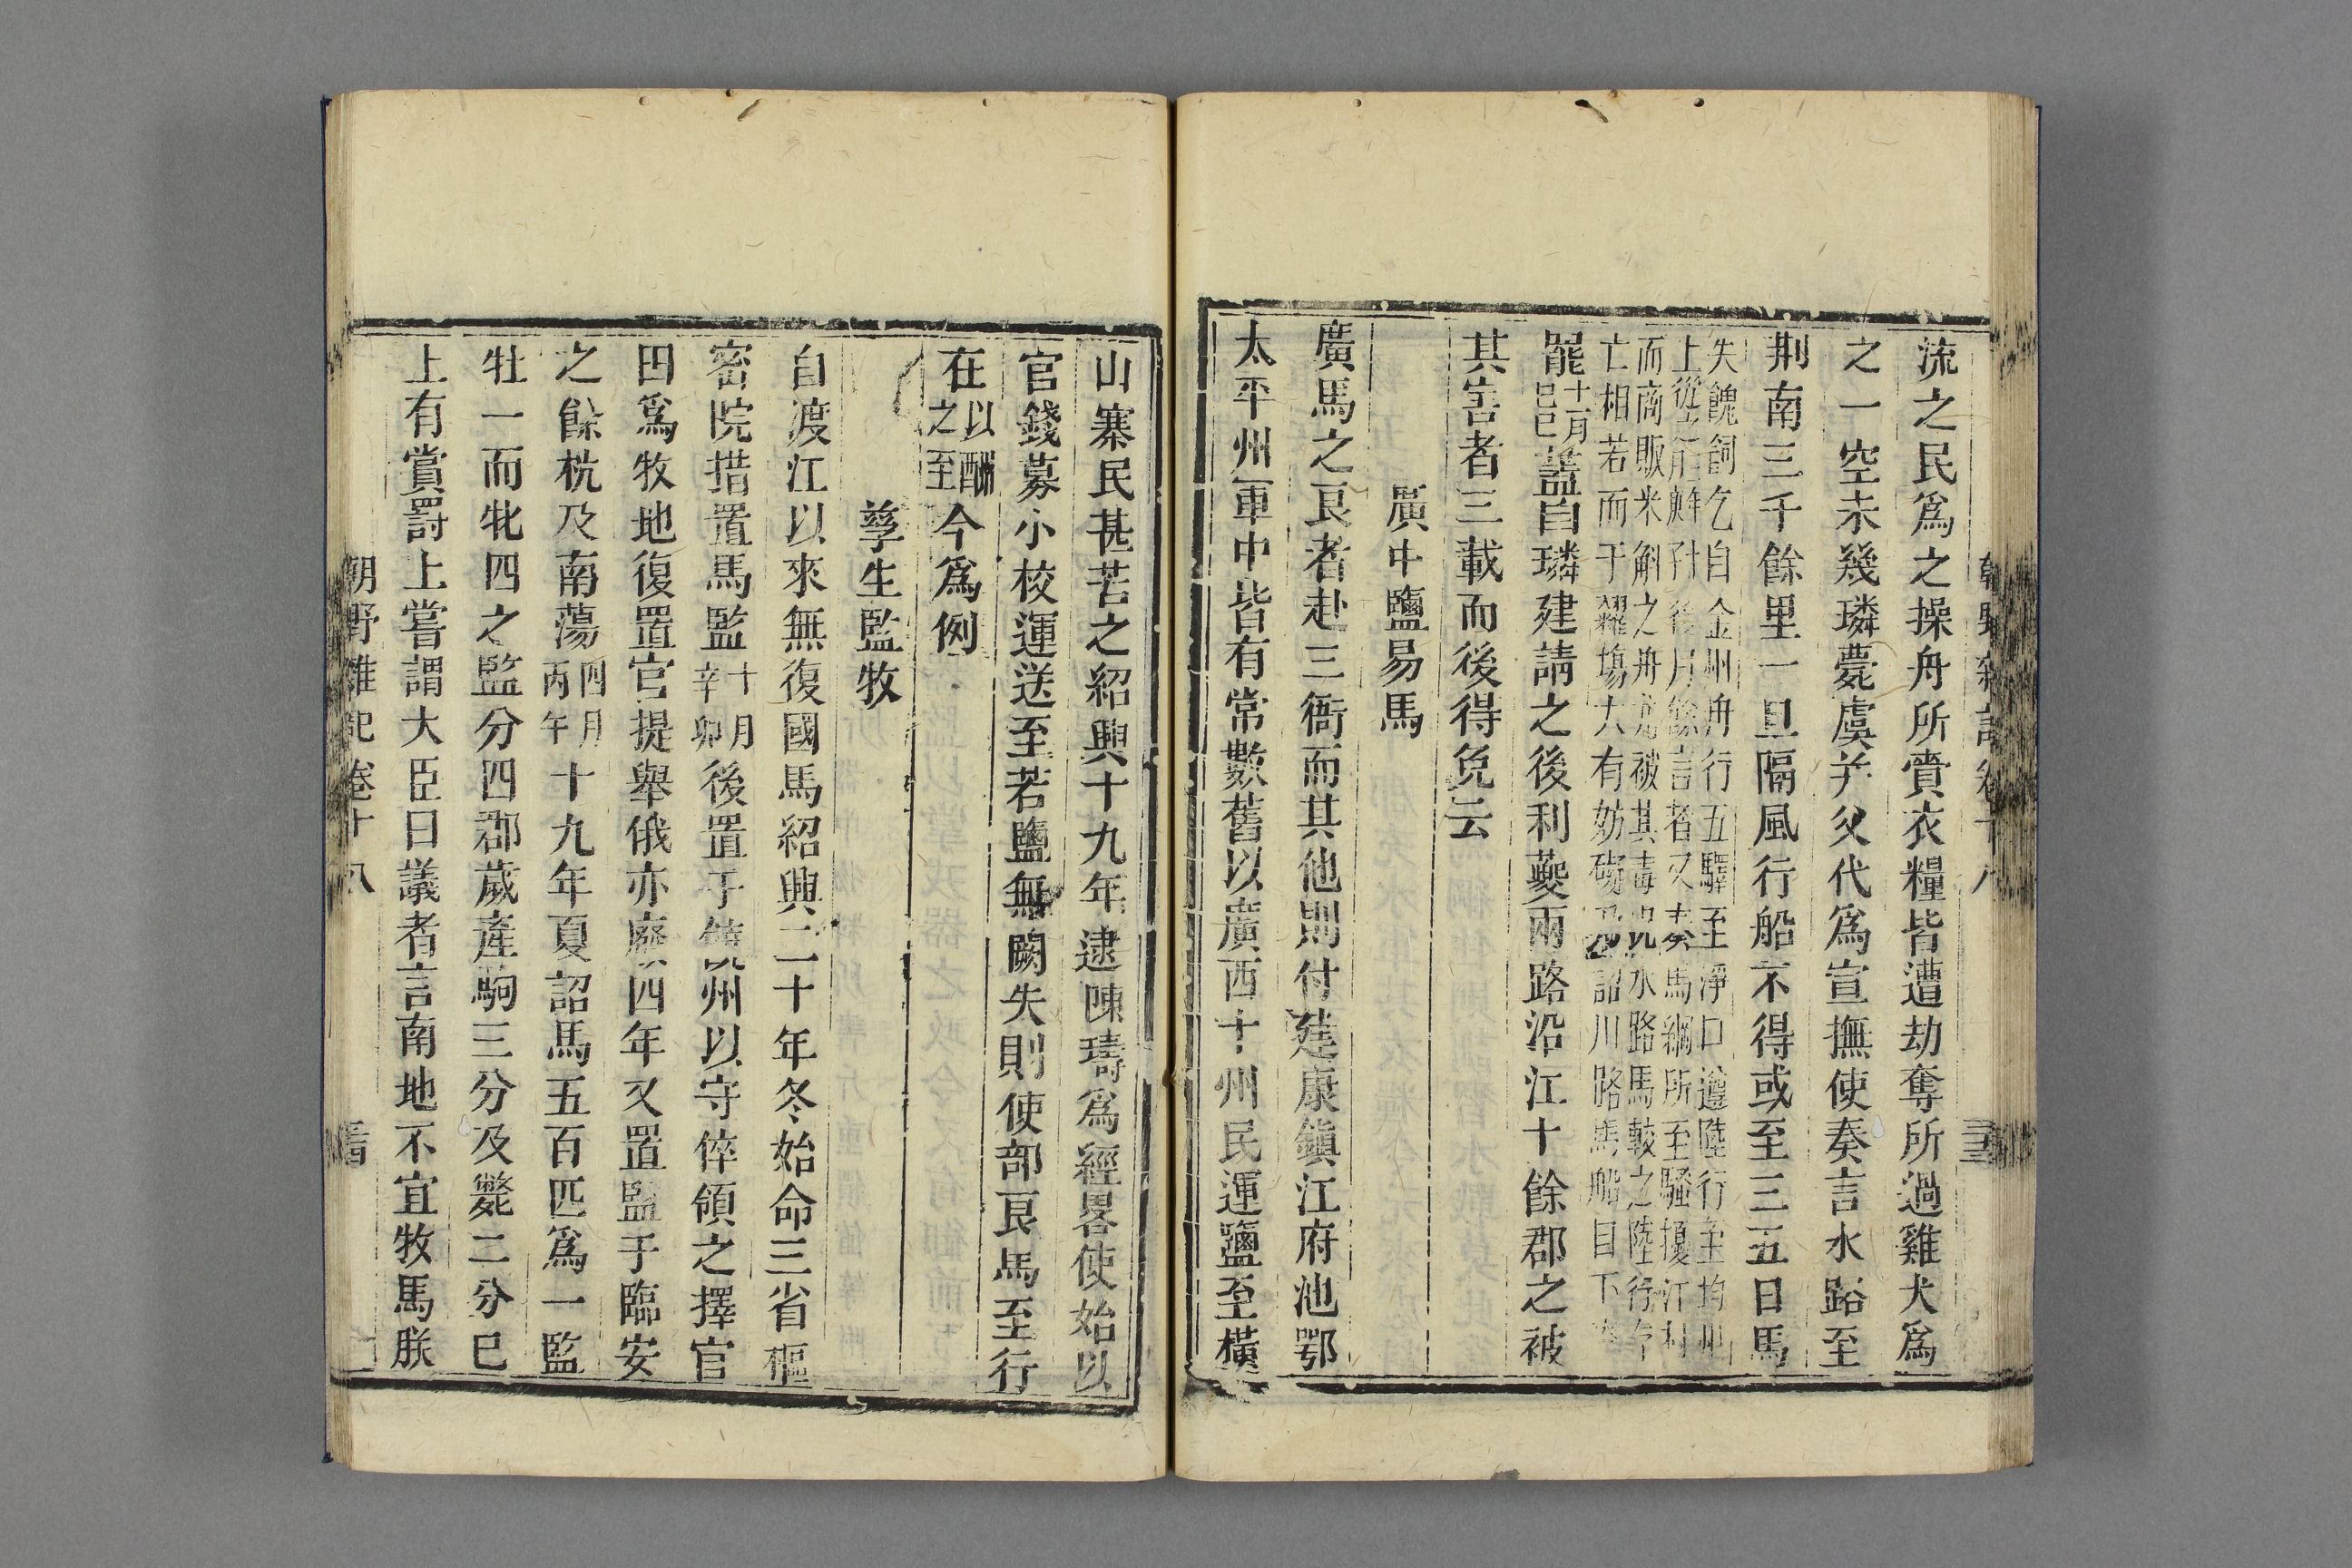 流之民爲之操舟所賫衣糧皆遭劫奪所過雞犬爲
之一空未幾璘薨虞并父代爲宣撫使奏言水路至
荆南三千餘里一旦隔風行船不得或至三五日馬
失餽飼乞自金州舟行五驛至淨口遵陸行至均州
上從之月餘言者又奏馬綱所至騷擾江村
而商販米斛之舟尤被其毒况水路馬較之陸行存
亡相若而于糴塲大有妨礙乃詔川路馬船目下
罷十一月己巳葢自璘建請之後利夔兩路沿江十餘郡之被
其害者三載而後得免云
廣中鹽易馬
廣馬之良者赴三衙而其他則付建康鎮江府池鄂
太平州軍中皆有常數舊以廣西十州民運鹽至橫
山寨民甚苦之紹興十九年逮陳璹爲經畧使始以
官錢募小校運送至若鹽無闕失則使部良馬至行
在以酬之至今爲例
孳生監牧
自渡江以來無復國馬紹興二十年冬始命三省樞
密院措置馬監十月辛卯後置于饒州以守倅領之擇官
田爲牧地復置官提舉俄亦廢四年又置監于臨安
之餘杭及南蕩四月丙午十九年夏詔馬五百匹爲一監
牡一而牝四之監分四郡歲產駒三分及斃二分巳
上有賞罰上嘗謂大臣曰議者言南地不宜牧馬朕
朝野雜記卷十八